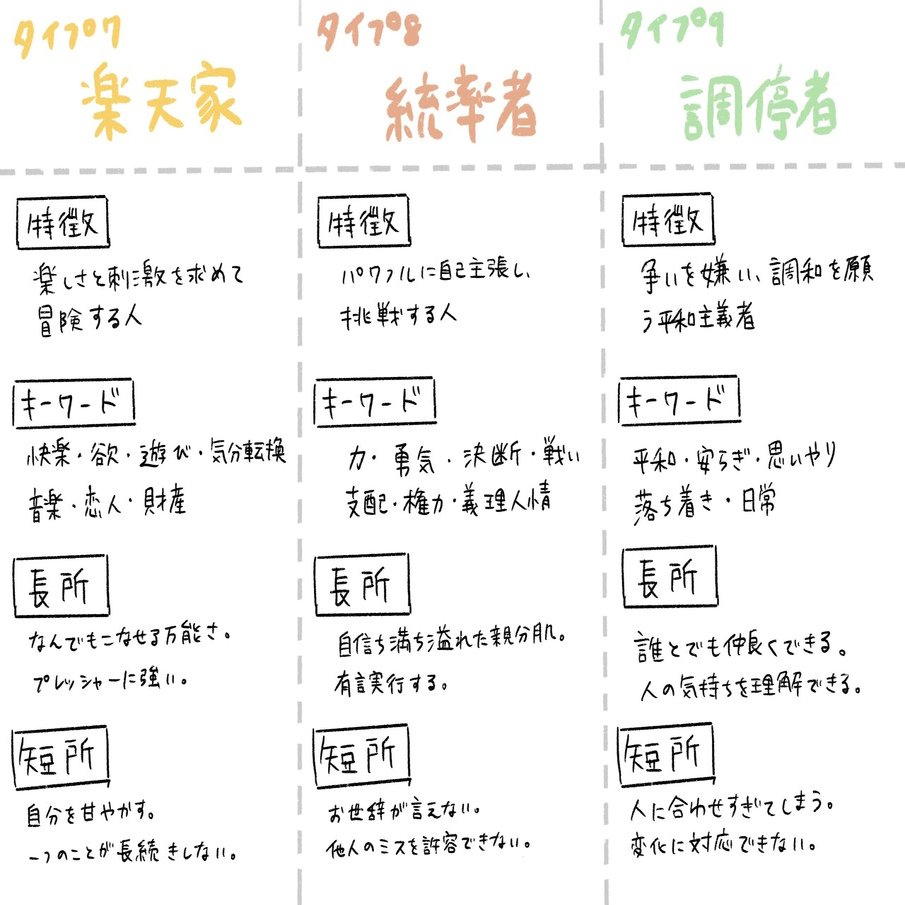 タイプ7
楽天家
特徴
楽しさと刺激を求めて
冒険する人
キーワード
快楽・欲・遊び・気分転換
音楽・恋人・財産
長所
なんでもこなせる万能さ。
プレッシャーに強い。
短所
自分を甘やかす。
一つのことが長続きしない。
タイプ8
統率者
特徴
パワフルに自己主張し、
挑戦する人
キーワード
力・勇気・決断・戦い
支配・権力・義理人情
長所
自信ち満ち溢れた親分肌。
有言実行する。
短所
お世辞が言えない。
他人のミスを許容できない。
タイプ9
調停者
特徴
争いを嫌い、調和を願
う平和主義者
キーワード
平和・安らぎ・思いやり
落ち着き・日常
長所
誰とでも仲良くできる。
人の気持ちを理解できる。
短所
人に合わせすぎてしまう。
変化に対応できない。